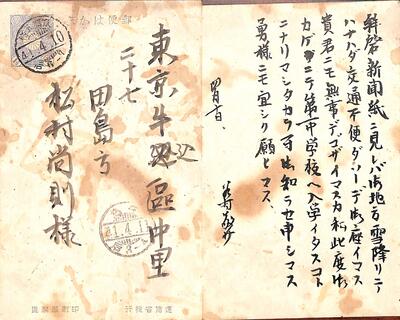 郵便はかき
41.4.10
東京牛込區中里
二十七
田島方
松村尚則様
41.4.11
逓信省発行
印刷局製造
拝啓新聞紙ニ見レバ御地方雪降リニテ
ハナハダ交通不便ダソーデ御座イマス
貴君ニモ無事デゴザイマスカ私此度御
カゲニテ第中学校ヘ入学イタスコト
ニナリマシタカラ御知ラセ申シマス
勇様ニモ宜シク願ヒマス
四月十日